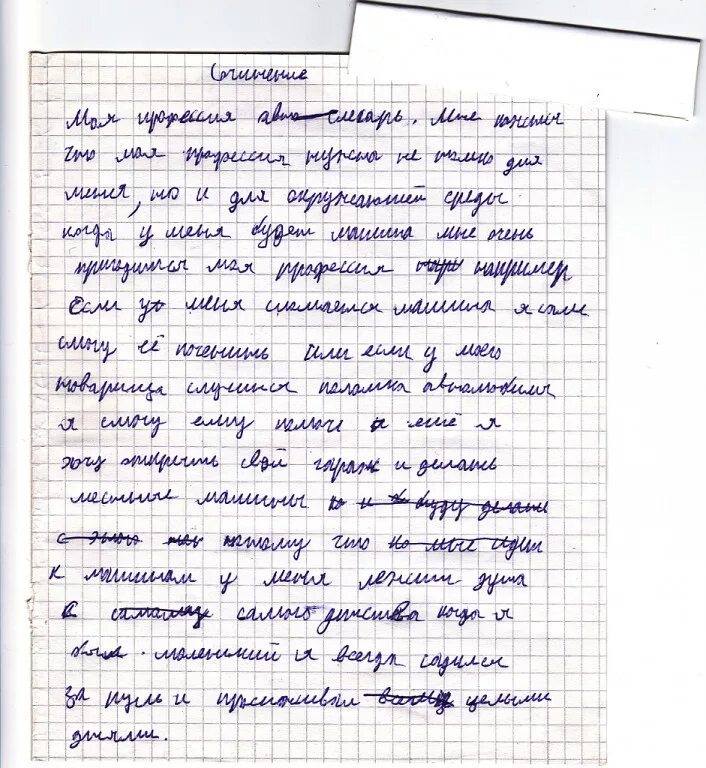 Сочинение
Моя профессия авто слесарь. Мне кажится
что моя профессия нужна не толко для
меня, но и для окружающей среды
когда у меня будет машина мне очень
пригодится моя профессия например
Если у меня сломается машина я сам
смогу её починить или если у моего
товарища случится поломка автомобиля
я смогу ему помочь и ещё я
хочу открыть свой гараж и делать
машины
потому что
к машинам у меня лежит душа
с самого детства когда я
был маленький я всегда садился
за руль и просиживал целыми
днями.